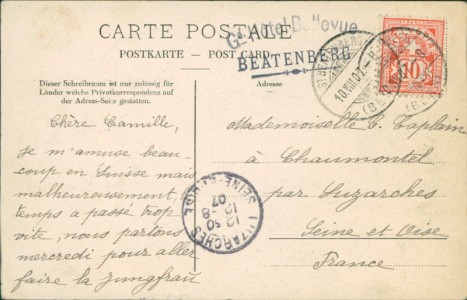 CARTE POSTALE
Gd Hotel Bellevue
POSTKARTE - POST CARD
BEATENBERG
Dieser Schreibraum ist nur zulässig für
Länder welche Privatkorrespondenz auf
der Adress-Seite gestatten.
Adresse
10
10.VIII.07
Chère Camille,
je m'amuse beau-
coup en Suisse mais
malheureusement, le
temps a passé trop
vite, nous partons
mercredi pour aller
faire la Jungfrau
Mademoiselle C. Taplain
à Chaumontel
par Luzarches
Seine et Oise
France
LUZARCHES
12 30
15-8
07
SEINE-ET-OISE